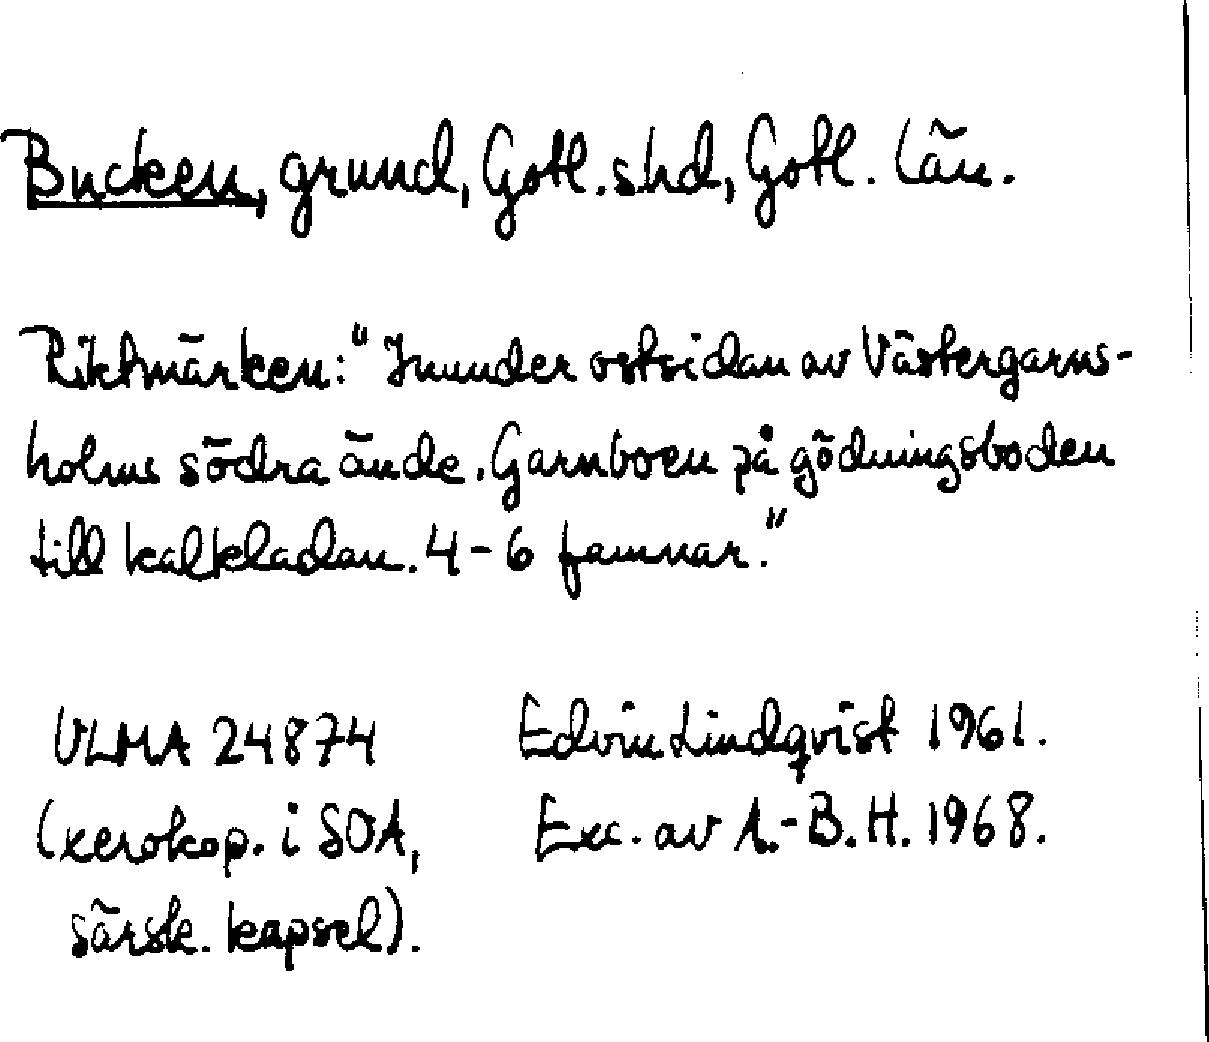 Bucken, grund, Gotl. shd, Gotl. län.
Riktmärken: "Inunder ostsidan av Västergarns-
holms södra ände. Garnboen på gödningsboden
till kalkladan. 4-6 famnar."
ULMA 24874 Edvin Lindqvist 1961.
(xerokop. i SOA, Exc. av A.-B.H. 1968.
särsk. kapsel).